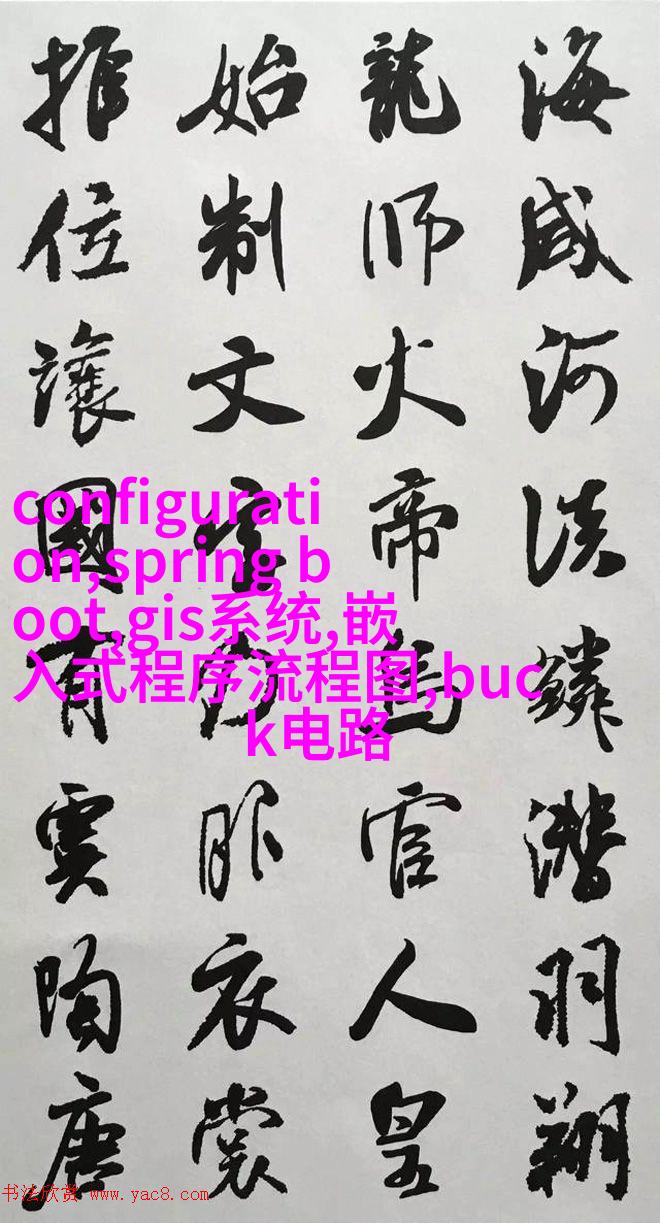 海咸河淡鱗潛羽翔
龍師火帝鳥官人皇
始制文字乃服衣裳
推位讓國有虞陶唐
configurati
on,spring b
oot,gis系统,嵌
入式程序流程图,buc
k电路
书法欣赏 www.yac8.com